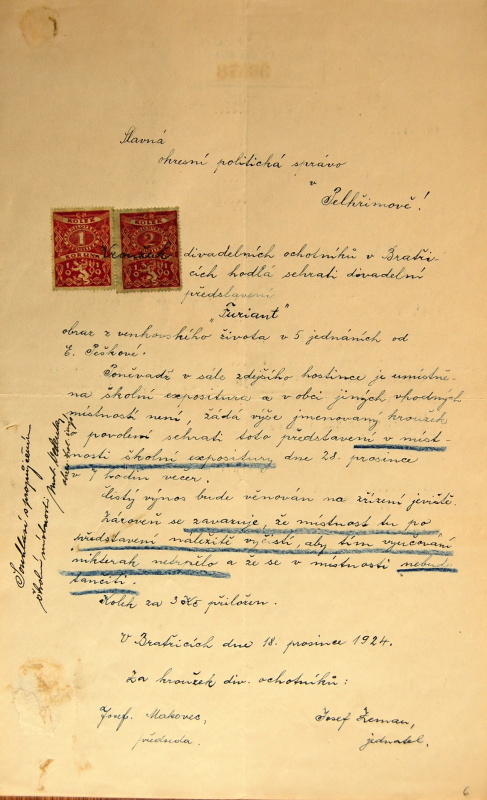 Slavná
okresní politická správo
v
Pelhřimově!
ČR
KOLEK
1
KORUNA
ČR
KOLEK
Kroužek divadelních ochotníků v Bratři-
cích hodlá sehrati divadelní
představení
"Furiant"
obraz z venkovského života v 5 jednáních od
E. Peškové.
Poněvadž v sále zdejšího hostince je umístě-
na školní expositura a v obci jiných vhodných
místností není, žádá výše jmenovaný kroužek
o povolení sehrati toto představení v míst-
nosti školní expositury dne 28. prosince
v 7 hodin večer.
Čistý výnos bude věnován na zřízení jeviště.
Zároveň se zavazuje, že místnost tu po
představení náležitě vyčistí, aby tím vyučování
nikterak netrpělo a že se v místnosti nebude
tančiti.
Kolek za 3 Kč přiložen.
V Bratřicích dne 18. prosince 1924.
Za kroužek div. ochotníků:
Josef Makovec, Josef Zeman,
předseda. jednatel.
Souhlasí s propůjčením
školní místnosti
6